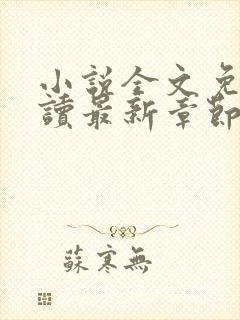 小說全文免
讀最新章節
蘇寒無